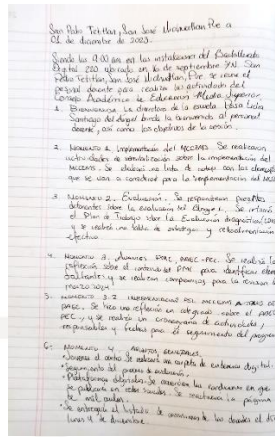 San Pedro Tetitlan, San José Miahuatlan Pue a
01 de diciembre de 2023.
Siendo las 9:00 am en las instalaciones del Bachillerato
Digital 220 ubicado en 16 de septiembre S/N. San
Pedro Tetitlan, San José Miahuatlan, Pue se reune el
personal docente para realizar las actividades del
Consejo Académico de Educacion Media Superior.
1. Bienvenida. La directora de la escuela
Santiago del Angel brinda la bienvenida al personal
docente, así como los objetivos de la sesión.
2. Momento 1. Implementación del MCCEMS. Se realizaron
actividades de sensibilización sobre la implementación del
MCCEMS. Se elaboró una lista de cotejo con los elementos
que se van a considerar para la implementación del
3. Momento 2. Evaluación. Se respondieron
detonantes sobre la evaluación del Se retomó
el Plan de Trabajo sobre la Evaluación diagnóstica
y se realizó una tabla de estrategias y retroalimentación
efectiva.
4. Momento 3. Avances PMC, PAEC-PEC. Se realizó la
reflexión sobre el contenido del PMC para identificar
y se realizan compromisos para la revisión
marzo 2024.
5. Momento 3.2 Implementación del MCCEMS a través de
PAEC. Se hizo una reflexión en colegiado sobre el PAEC
PEC, y se realizó un cronograma de actividades,
responsables y fechas para el seguimiento del programa
6. Momento 4. Asuntos generales.
evidencias digital.
• Seguimiento del proceso de evaluación.
• Plataformas digitales. Se
se realizará la
• Se entregará el listado de
lunes 4 de diciembre.